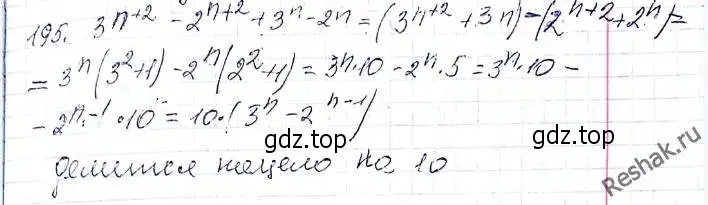 195. 3^{n+2} - 2^{n+2} + 3^n - 2^n = (3^{n+2} + 3^n) - (2^{n+2} + 2^n) =
= 3^n(3^2+1) - 2^n(2^2+1) = 3^n·10 - 2^n·5 = 3^n·10 -
- 2^{n-1}·10 = 10·(3^n - 2^{n-1})
gdz.top
gdz.top
делится нацело на 10
gdz.top
Reshak.ru